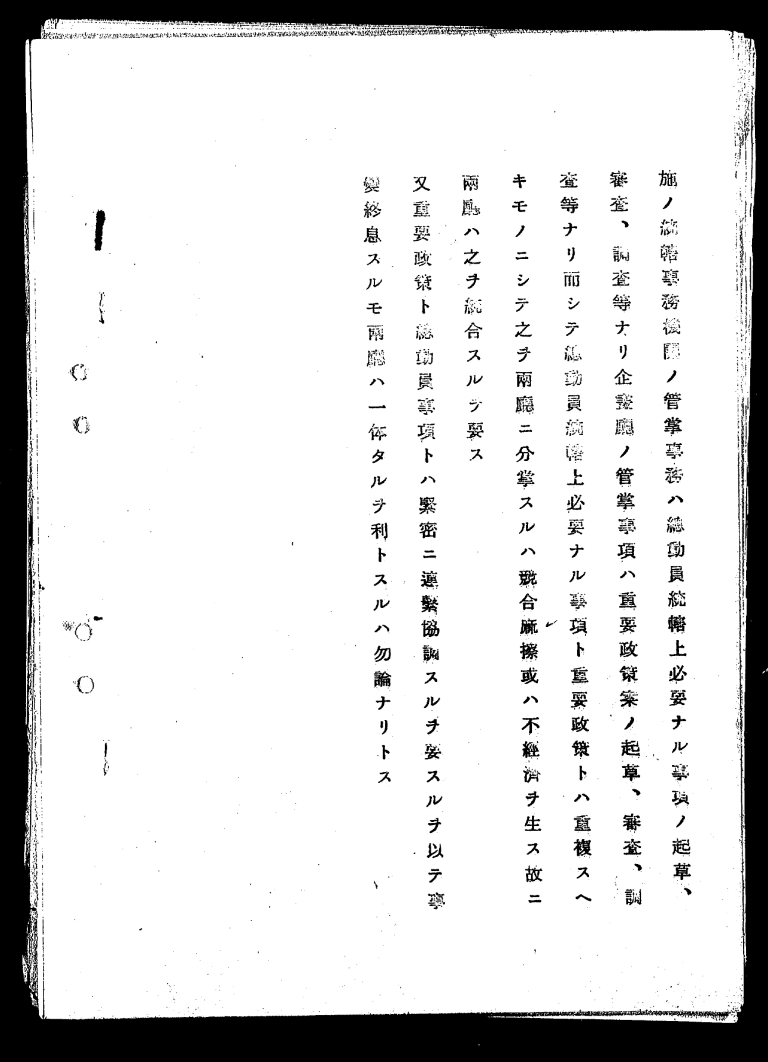 施ノ統轄事務機関ノ管掌事務ハ総動員統轄上必要ナル事項ノ起草、
審査、調査等ナリ企畫廳ノ管掌事項ハ重要政策案ノ起草、審査、調
査等ナリ而シテ総動員統轄上必要ナル事項ト重要政策トハ重複スヘ
キモノニシテ之ヲ兩廳ニ分掌スルハ競合摩擦或ハ不經濟ヲ生ス故ニ
兩廳ハ之ヲ統合スルヲ要ス
又重要政策ト総動員事項トハ緊密ニ連繫協調スルヲ要スルヲ以テ事
變終息スルモ兩廳ハ一体タルヲ利トスルハ勿論ナリトス